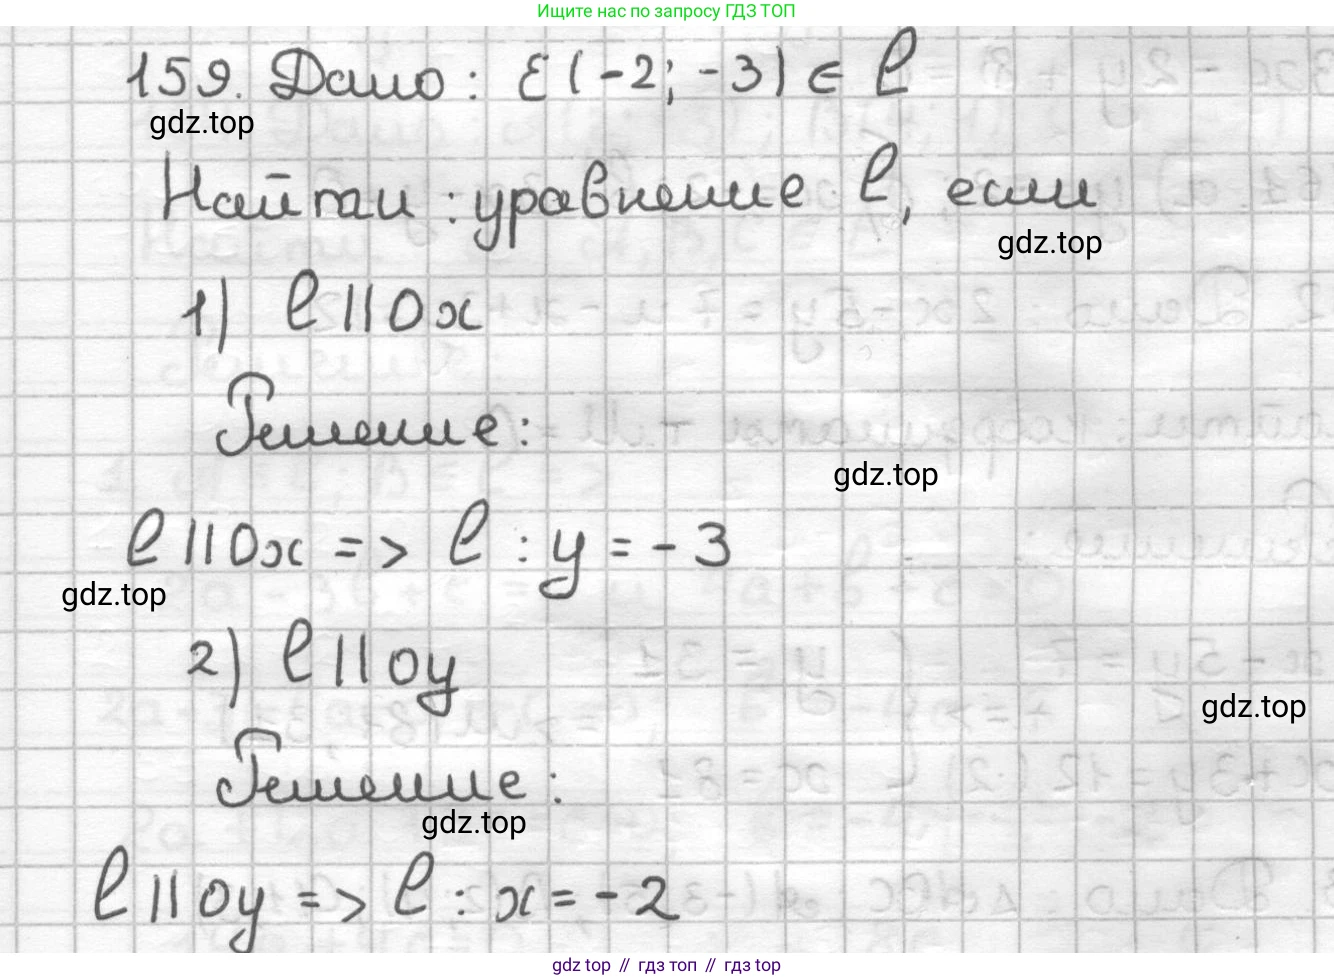 Ищите нас по запросу ГДЗ ТОП
159. Дано: E(-2; -3) ∈ l
gdz.top
Найти: уравнение l, если
gdz.top
1) l || Ox
Решение:
gdz.top
l || Ox => l : y = -3
gdz.top
2) l || Oy
gdz.top
Решение:
gdz.top
l || Oy => l : x = -2
gdz top // гдз топ // gdz top